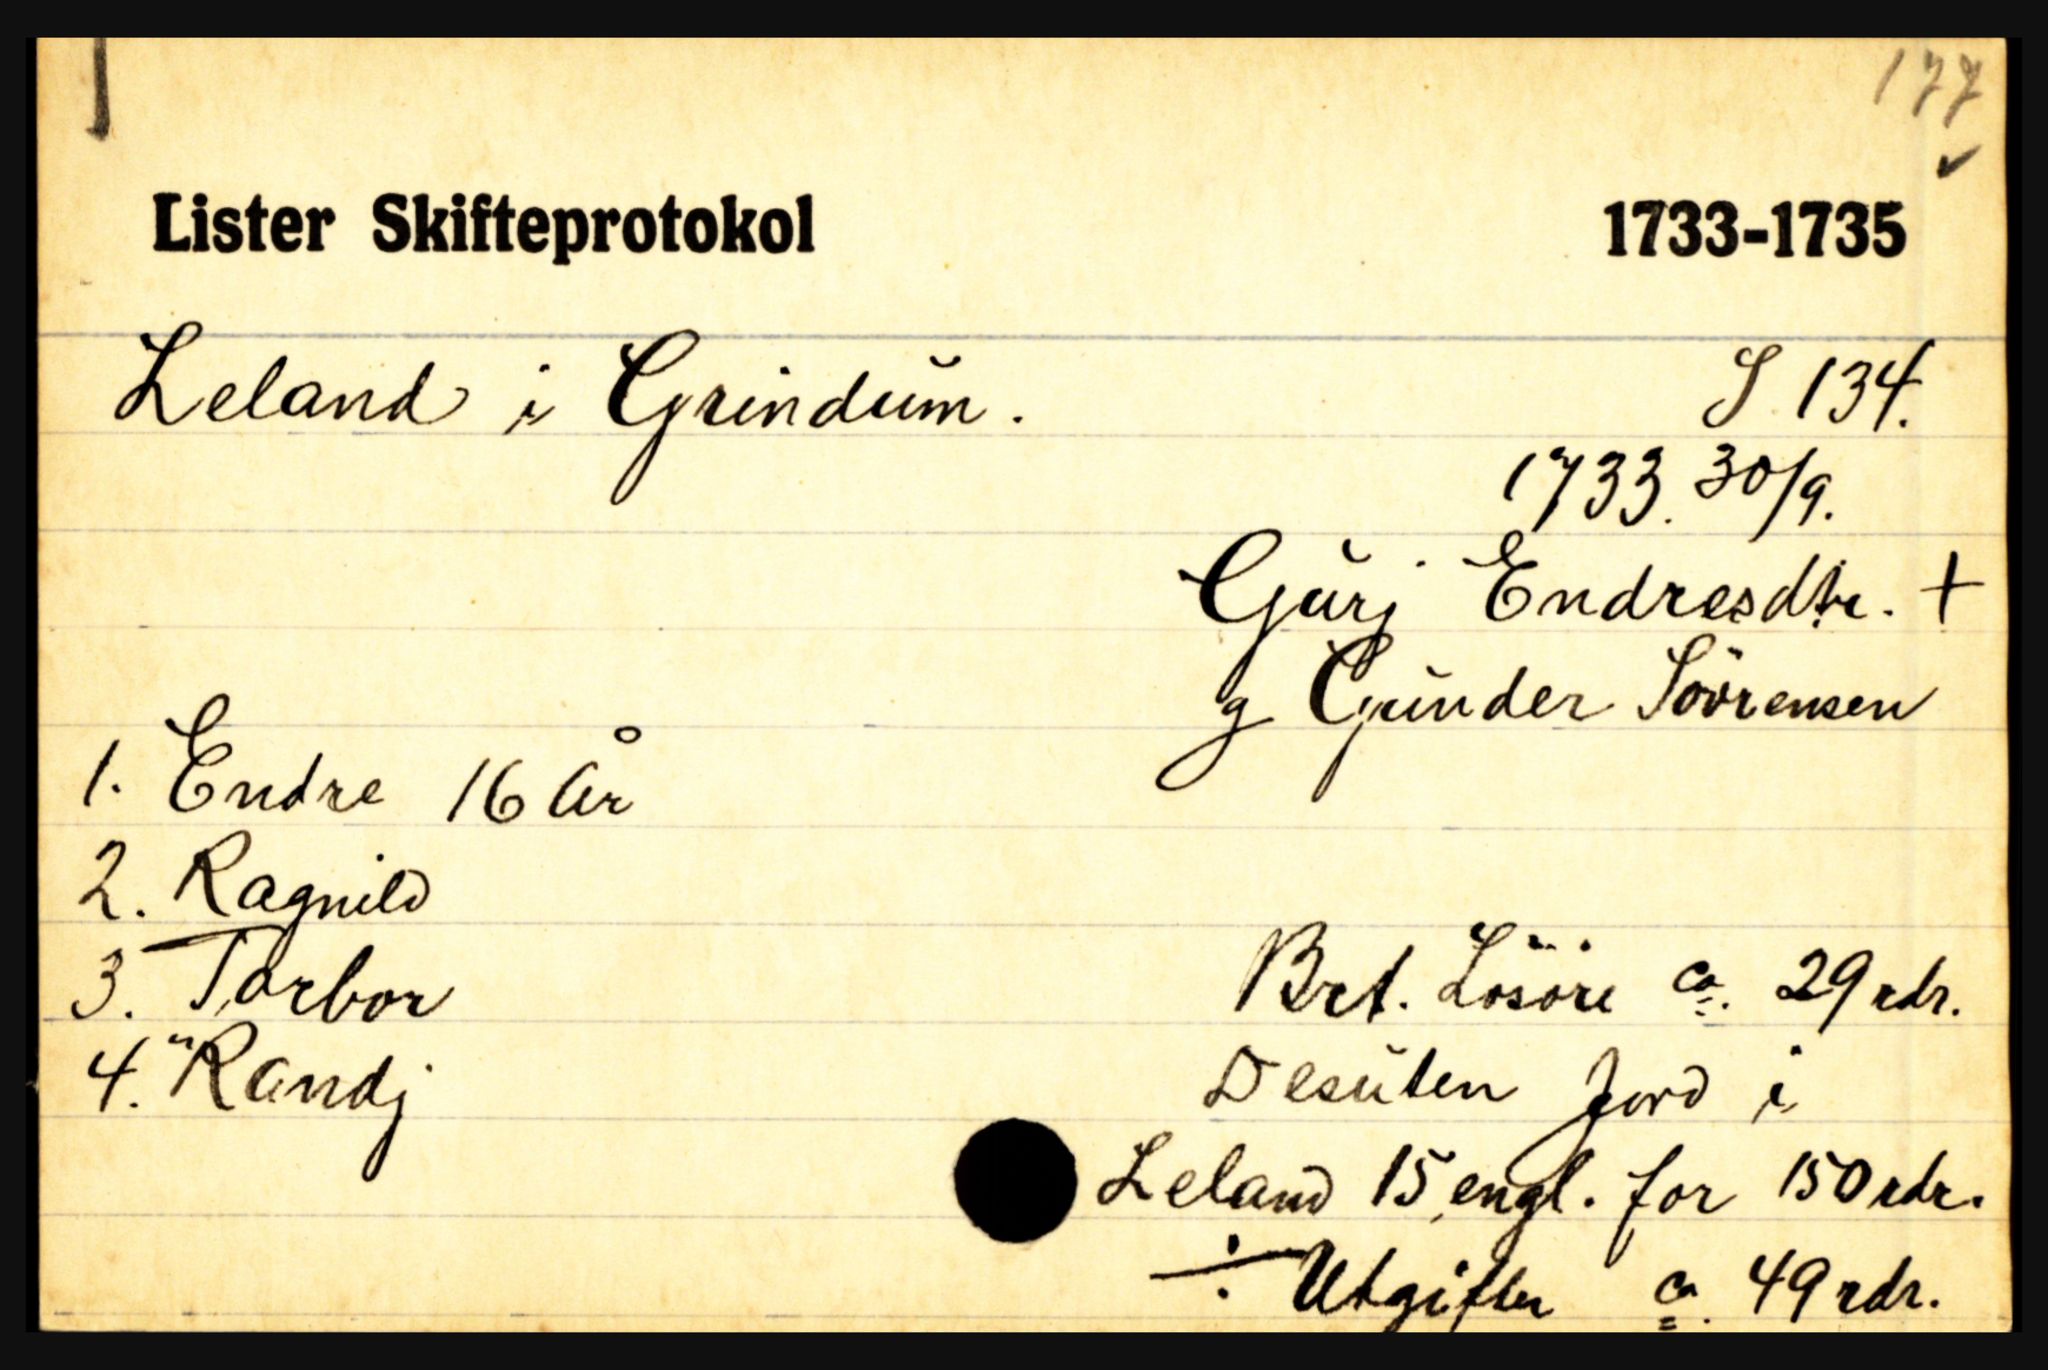 177
✓
Lister Skifteprotokol 1733-1735
Leland i Grindum. S 134.
1733. 30/9.
Gurj Endresdtr. +
g Gunder Sörensen
1. Endre 16 År
2. Ragnild
3. Torbor
4. Randj
Brt. Lösöre ca. 29 rdr.
Desuten Jord i
Leland 15 engl. for 150 rdr.
÷ Utgifter ca. 49 rdr.